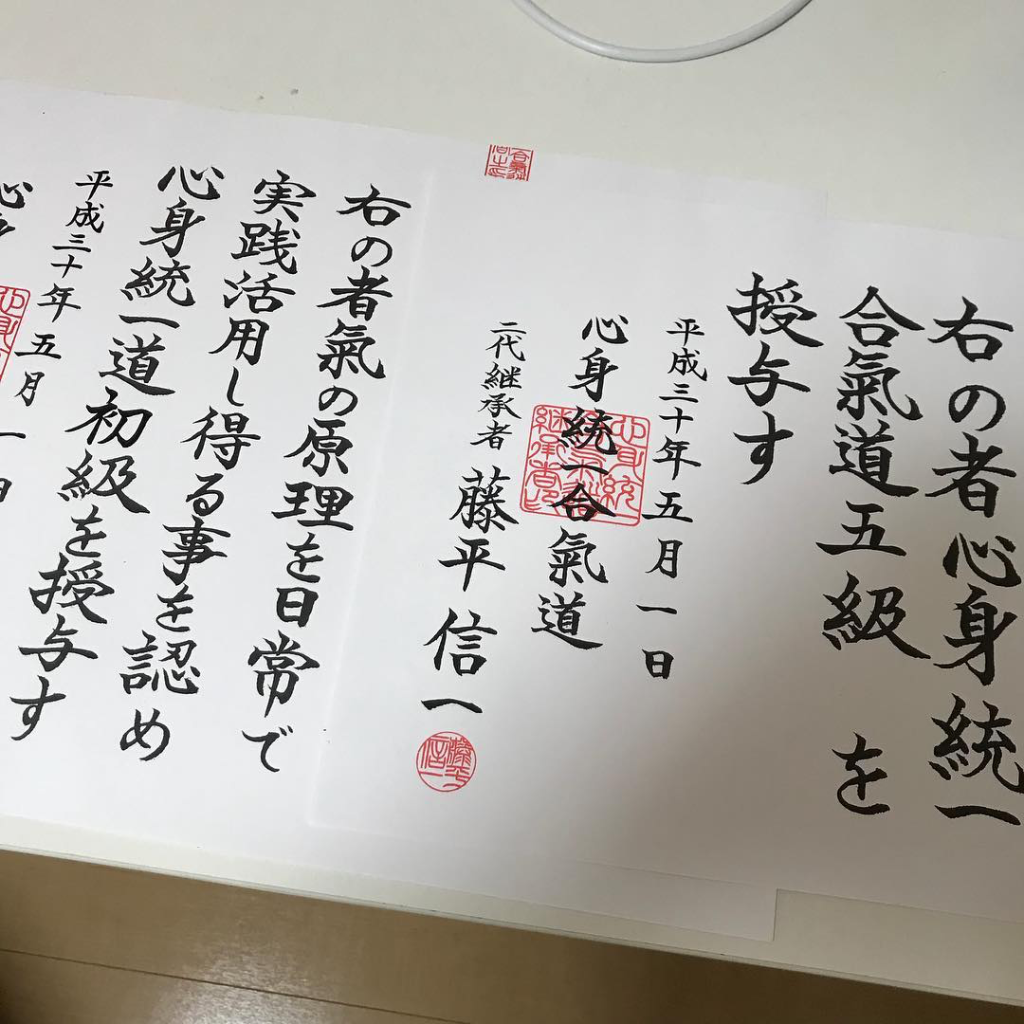 右の者心身統一
合氣道五級を
授与す
平成三十年五月一日
心身統一合氣道
二代継承者 藤平信一
右の者氣の原理を日常で
実践活用し得る事を認め
心身統一道初級を授与す
平成三十年五月一日
心身